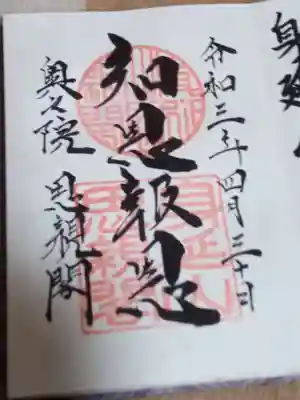 身延山
令和三年四月三十日
知恩報恩
奥之院 思親閣